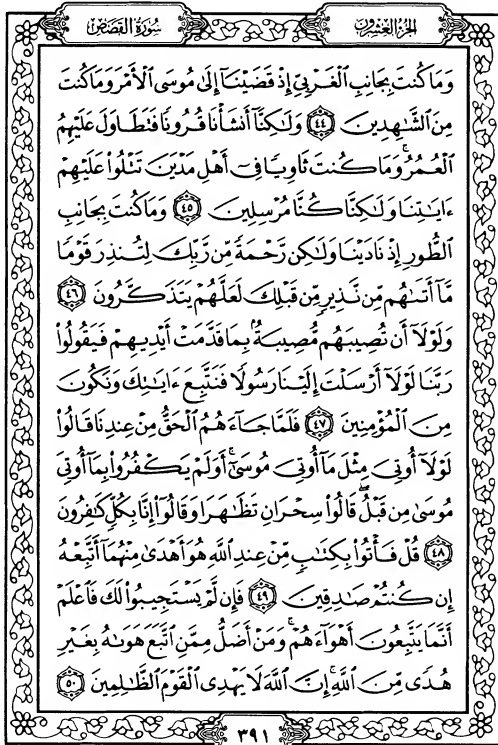 سُورَةُ القَصَصِ
الجُزْءُ العِشْرُونَ
وَمَا كُنتَ بِجَانِبِ ٱلْغَرْبِيِّ إِذْ قَضَيْنَآ إِلَىٰ مُوسَى ٱلْأَمْرَ وَمَا كُنتَ
مِنَ ٱلشَّٰهِدِينَ ٤٤ وَلَٰكِنَّآ أَنشَأْنَا قُرُونًا فَتَطَاوَلَ عَلَيْهِمُ
ٱلْعُمُرُۚ وَمَا كُنتَ ثَاوِيًا فِىٓ أَهْلِ مَدْيَنَ تَتْلُوا۟ عَلَيْهِمْ
ءَايَٰتِنَا وَلَٰكِنَّا كُنَّا مُرْسِلِينَ ٤٥ وَمَا كُنتَ بِجَانِبِ
ٱلطُّورِ إِذْ نَادَيْنَا وَلَٰكِن رَّحْمَةً مِّن رَّبِّكَ لِتُنذِرَ قَوْمًا
مَّآ أَتَىٰهُم مِّن نَّذِيرٍ مِّن قَبْلِكَ لَعَلَّهُمْ يَتَذَكَّرُونَ ٤٦
وَلَوْلَآ أَن تُصِيبَهُم مُّصِيبَةٌۢ بِمَا قَدَّمَتْ أَيْدِيهِمْ فَيَقُولُوا۟
رَبَّنَا لَوْلَآ أَرْسَلْتَ إِلَيْنَا رَسُولًا فَنَتَّبِعَ ءَايَٰتِكَ وَنَكُونَ
مِنَ ٱلْمُؤْمِنِينَ ٤٧ فَلَمَّا جَآءَهُمُ ٱلْحَقُّ مِنْ عِندِنَا قَالُوا۟
لَوْلَآ أُوتِىَ مِثْلَ مَآ أُوتِىَ مُوسَىٰٓۚ أَوَلَمْ يَكْفُرُوا۟ بِمَآ أُوتِىَ
مُوسَىٰ مِن قَبْلُۖ قَالُوا۟ سِحْرَانِ تَظَٰهَرَا وَقَالُوٓا۟ إِنَّا بِكُلٍّ كَٰفِرُونَ
٤٨ قُلْ فَأْتُوا۟ بِكِتَٰبٍ مِّنْ عِندِ ٱللَّهِ هُوَ أَهْدَىٰ مِنْهُمَآ أَتَّبِعْهُ
إِن كُنتُمْ صَٰدِقِينَ ٤٩ فَإِن لَّمْ يَسْتَجِيبُوا۟ لَكَ فَٱعْلَمْ
أَنَّمَا يَتَّبِعُونَ أَهْوَآءَهُمْۚ وَمَنْ أَضَلُّ مِمَّنِ ٱتَّبَعَ هَوَىٰهُ بِغَيْرِ
هُدًى مِّنَ ٱللَّهِۚ إِنَّ ٱللَّهَ لَا يَهْدِى ٱلْقَوْمَ ٱلظَّٰلِمِينَ ٥٠
٣٩١